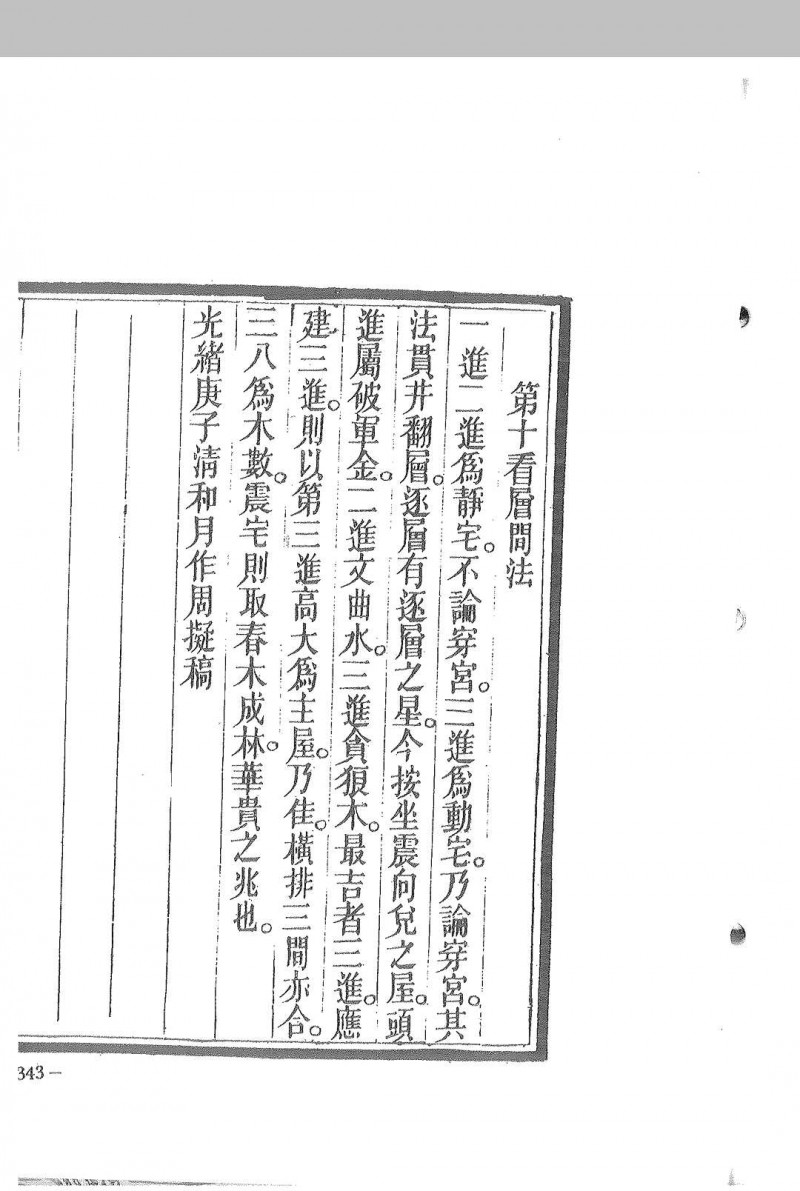 第十看層間法
一進二進爲靜宅。不論穿宮。三進爲動宅。乃論穿宮。其
法貫井翻層。逐層有逐層之星。今按坐震向兌之屋。頭
進屬破軍金。二進文曲水。三進貪狼木。最吉者三進。應
建三進。則以第三進高大爲主屋。乃佳。橫排三間亦合。
三八爲木數。震宅則取春木成林。華貴之兆也。
光緒庚子清和月作周擬稿
343 –